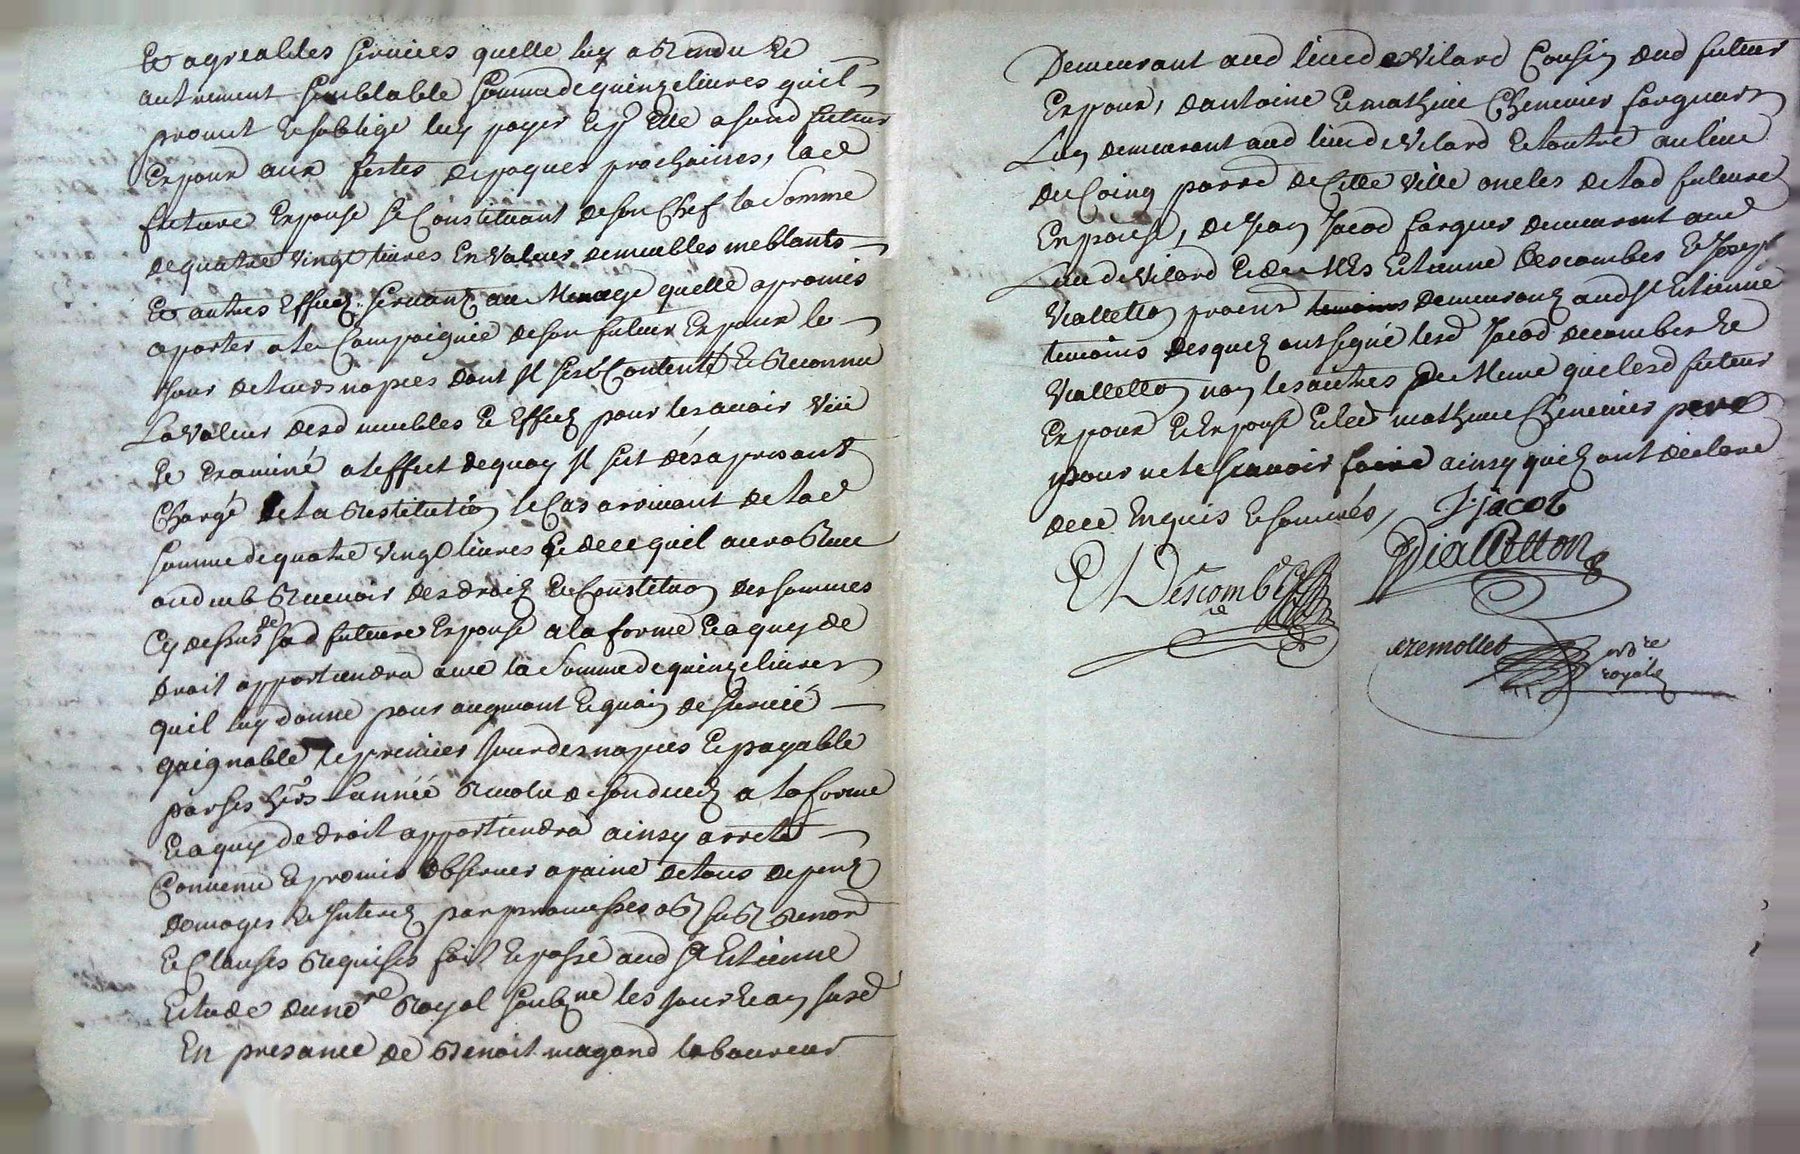 Et agreables services quelle luy a Rendu Et
autrement semblable somme de quinze livres quil
promet Et soblige luy payer Et a sond futur
Expoux aux festes de paques prochaines, lad
future Expouse se Constituant de son Chef la somme
de quatre vingt livres En valeur de meubles meblants
Et autres Effectz servantz au Menage quelle a promis
aporter a la Compaignie de son futur Expoux le
Jour de leurs nopces dont Il sest Contenté Et Reconnu
La valeur desd meubles Et Effectz pour les avoir veü
Et Examiné a leffect de quoy Il sest dés a present
Chargé de la Restitution le Cas arrivant de lad
somme de quatre vingt livres Et de ce quil aura Reeu
ou deub Recevoir des droitz Et Constitution des sommes
Cy dessus de sad future Expouse a la forme Et a quy de
droit appartiendra avec la somme de quinze livres
quil luy donne pour augment Et guain de survie
gaignable le premier Jour des nopces Et payable
par ses hers lannée Revolu de son decez a la forme
Et a quy de droit appartiendra ainsy arreté
Convenu Et promis observer a paine de tous depens
domages Et Interetz par promesses ob sub Renon
Et Clauses Requises fait Et passé aud St Etienne
Etude du nore Royal soubzne les Jour Et an susd
En presance de Benoit magand laboureur
Demeurant aud lieu de Vilard Cousin dud futeur
Expoux, dantoine Et mathieu Chemier
demeurant aud lieu de Vilard Et lautre au lieu
du Coing parre de Cette ville oncles de lad future
Expouse, de Jean Jacod demeurant aud
Lieu de Vilard Et de Mes Etienne Descombes Et Joseph
Vialletton demeurantz aud St Etienne
temoins desquelz ont signé lesd Jacod decombes Et
Vialletton non les autres de Meme que lesd futeur
Expoux Et Expouse Et led mathieu Chemier pere
pour ne le scavoir faire ainsy quilz ont declaré
de ce Enquis Et sommés,
J: jacob
Et Descombes
Vialletton
Tremollet nore
royal